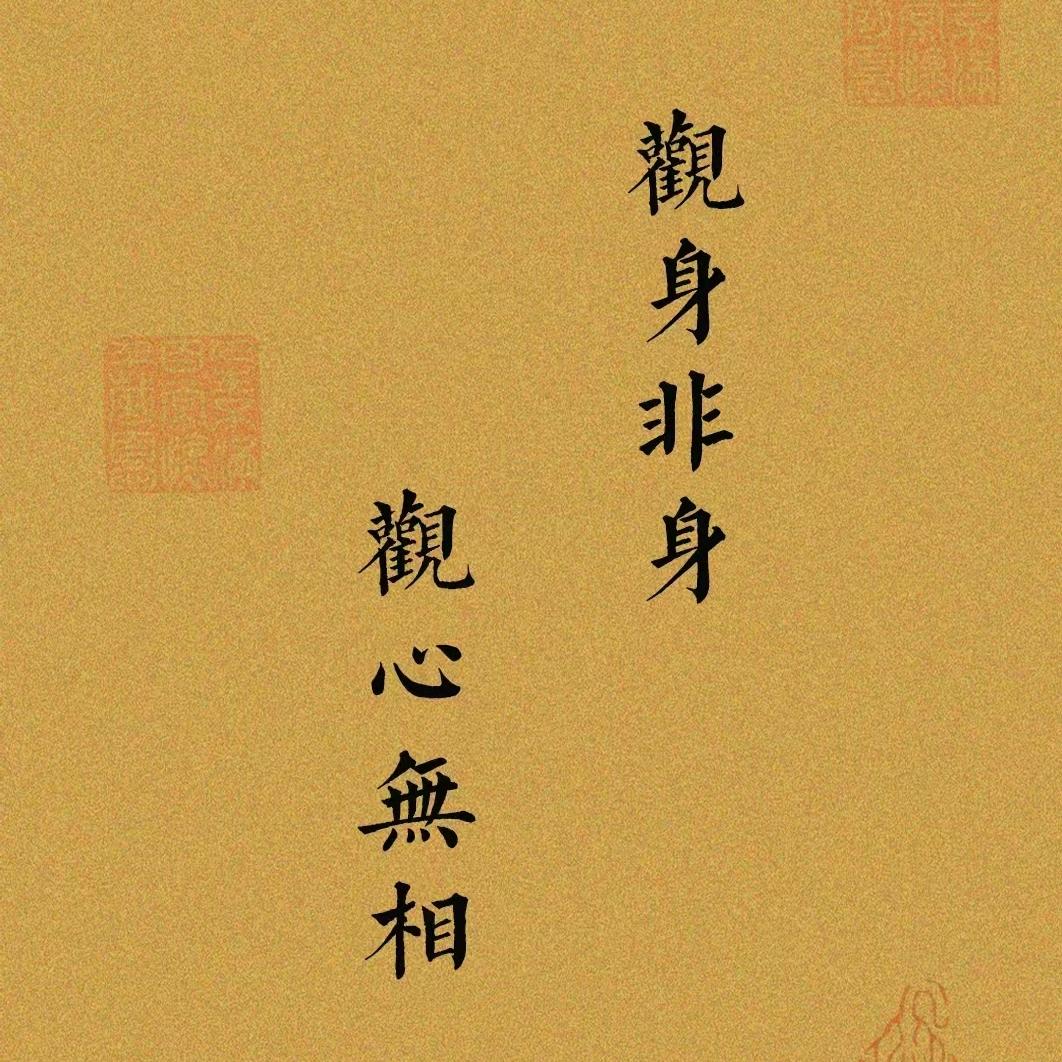 觀身非身
觀心無相